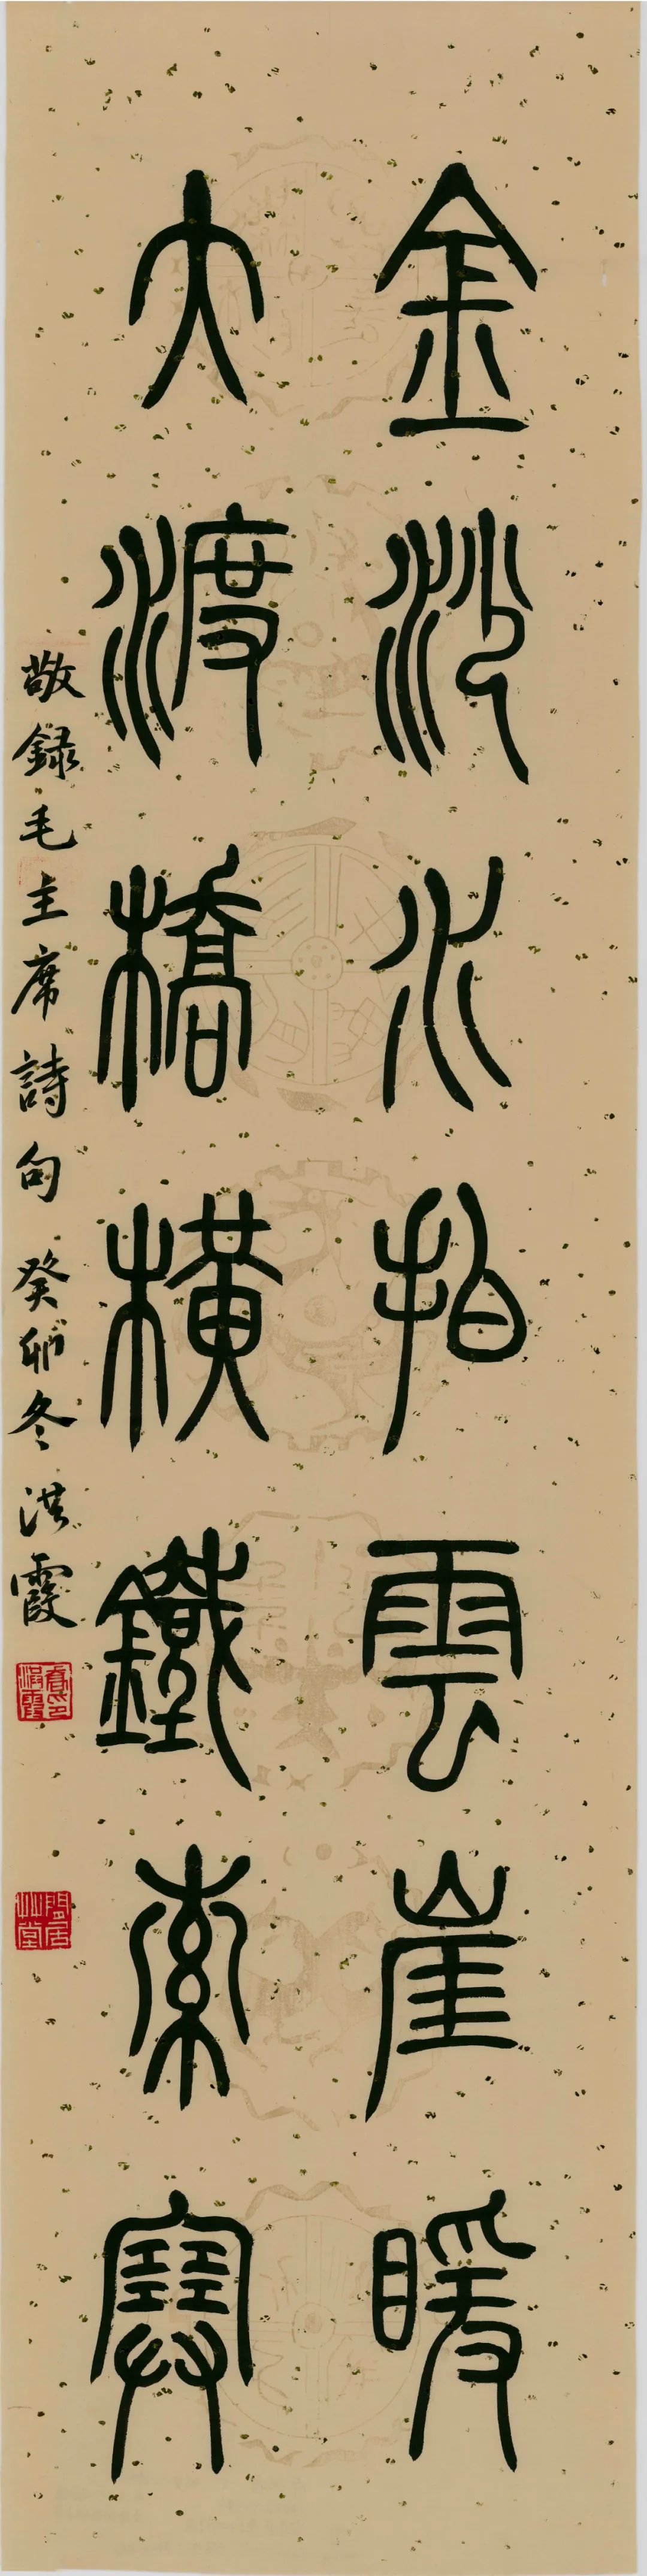 金沙水拍雲崖暖
大渡橋橫鐵索寒
敬録毛主席詩句 癸卯冬 洪霞